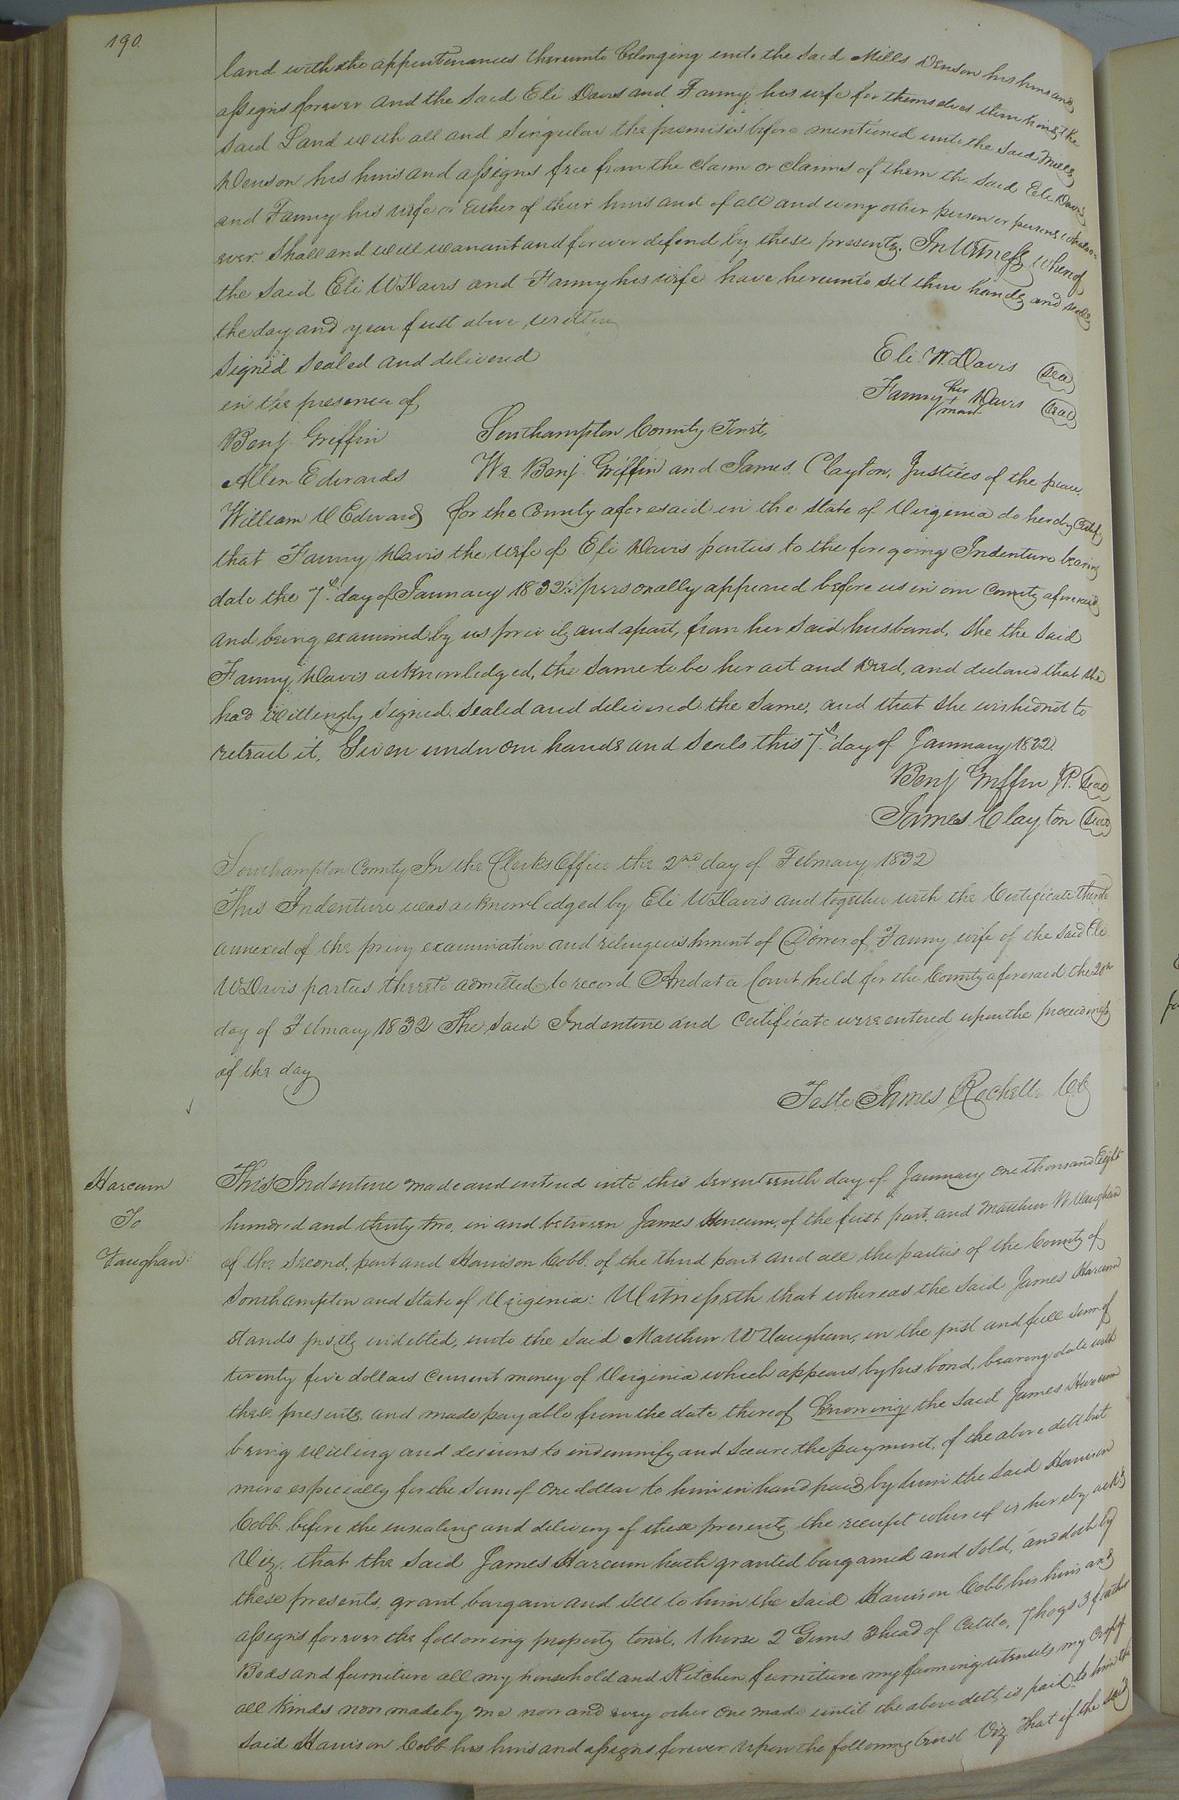 190.
land with the appurtenances thereunto belonging unto the said Mills Denson his heirs and
assigns forever and the said Eli Davis and Fanny his wife for themselves their heirs the
said Land with all and Singular the premises before mentioned unto the said Mills
Denson his heirs and assigns free from the claim or claims of them the said Eli Davis
and Fanny his wife or either of their heirs and of all and every other person or persons whatso-
ever shall and will warrant and forever defend by these presents. In Witness whereof
the said Eli W Davis and Fanny his wife have hereunto set their hands and seals
the day and year first above written
Signed sealed and delivered
in the presence of
Eli W. Davis Seal
Fanny her + mark Davis Seal
Benj. Griffin
Allen Edwards
William Edwards
Southampton County Towit,
We Benj. Griffin and James Clayton, Justices of the peace
for the County aforesaid in the State of Virginia do hereby Certify
that Fanny Davis the wife of Eli Davis parties to the foregoing Indenture bearing
date the 7th day of January 1832 personally appeared before us in our County aforesaid
and being examined by us privily and apart, from her said husband, she the said
Fanny Davis acknowledged, the same to be her act and Deed, and declared that she
had willingly signed sealed and delivered the same, and that she wished not to
retract it. Given under our hands and seals this 7th day of January 1832
Benj Griffin JP. Seal
James Clayton Seal
Southampton County In the Clerks Office the 2nd day of February 1832
This Indenture was acknowledged by Eli W Davis and together with the Certificate thereto
annexed of the privy examination and relinquishment of Dower of Fanny wife of the said Eli
W Davis parties thereto admitted to record And at a Court held for the County aforesaid the 20th
day of February 1832 The said Indenture and Certificate were entered upon the proceedings
of the day
Teste James Rochelle CC
Harcum
To
Vaughan:
This Indenture made and entered into this seventeenth day of January one thousand Eight
hundred and thirty two, in and between James Harcum, of the first part, and Matthew W Vaughan
of the Second part and Harrison Cobb of the third part and all the parties of the County of
Southampton and State of Virginia: Witnesseth that whereas the said James Harcum
stands justly indebted, unto the said Matthew W Vaughan, in the just and full sum of
twenty five dollars Current money of Virginia which appears by his bond, bearing date with
these presents, and made payable from the date thereof Knowing the said James Harcum
being willing and desirous to indemnify and secure the payment, of the above debt but
more especially for the sum of One dollar to him in hand paid by him the said Harrison
Cobb before the ensealing and delivery of these presents the receipt whereof is hereby ackd
Viz. that the said James Harcum hath granted bargained and sold, and doth by
these presents, grant bargain and sell to him the said Harrison Cobb his heirs and
assigns forever the following property towit, 1 horse 2 Guns 3 head of Cattle, 7 hogs 3 feather
Beds and furniture all my household and Kitchen furniture my farming utensels my Crop of
all kinds now made by me now and every other one made until the above debt is paid to him the
said Harrison Cobb his heirs and assigns forever upon the following trust Viz That if the said